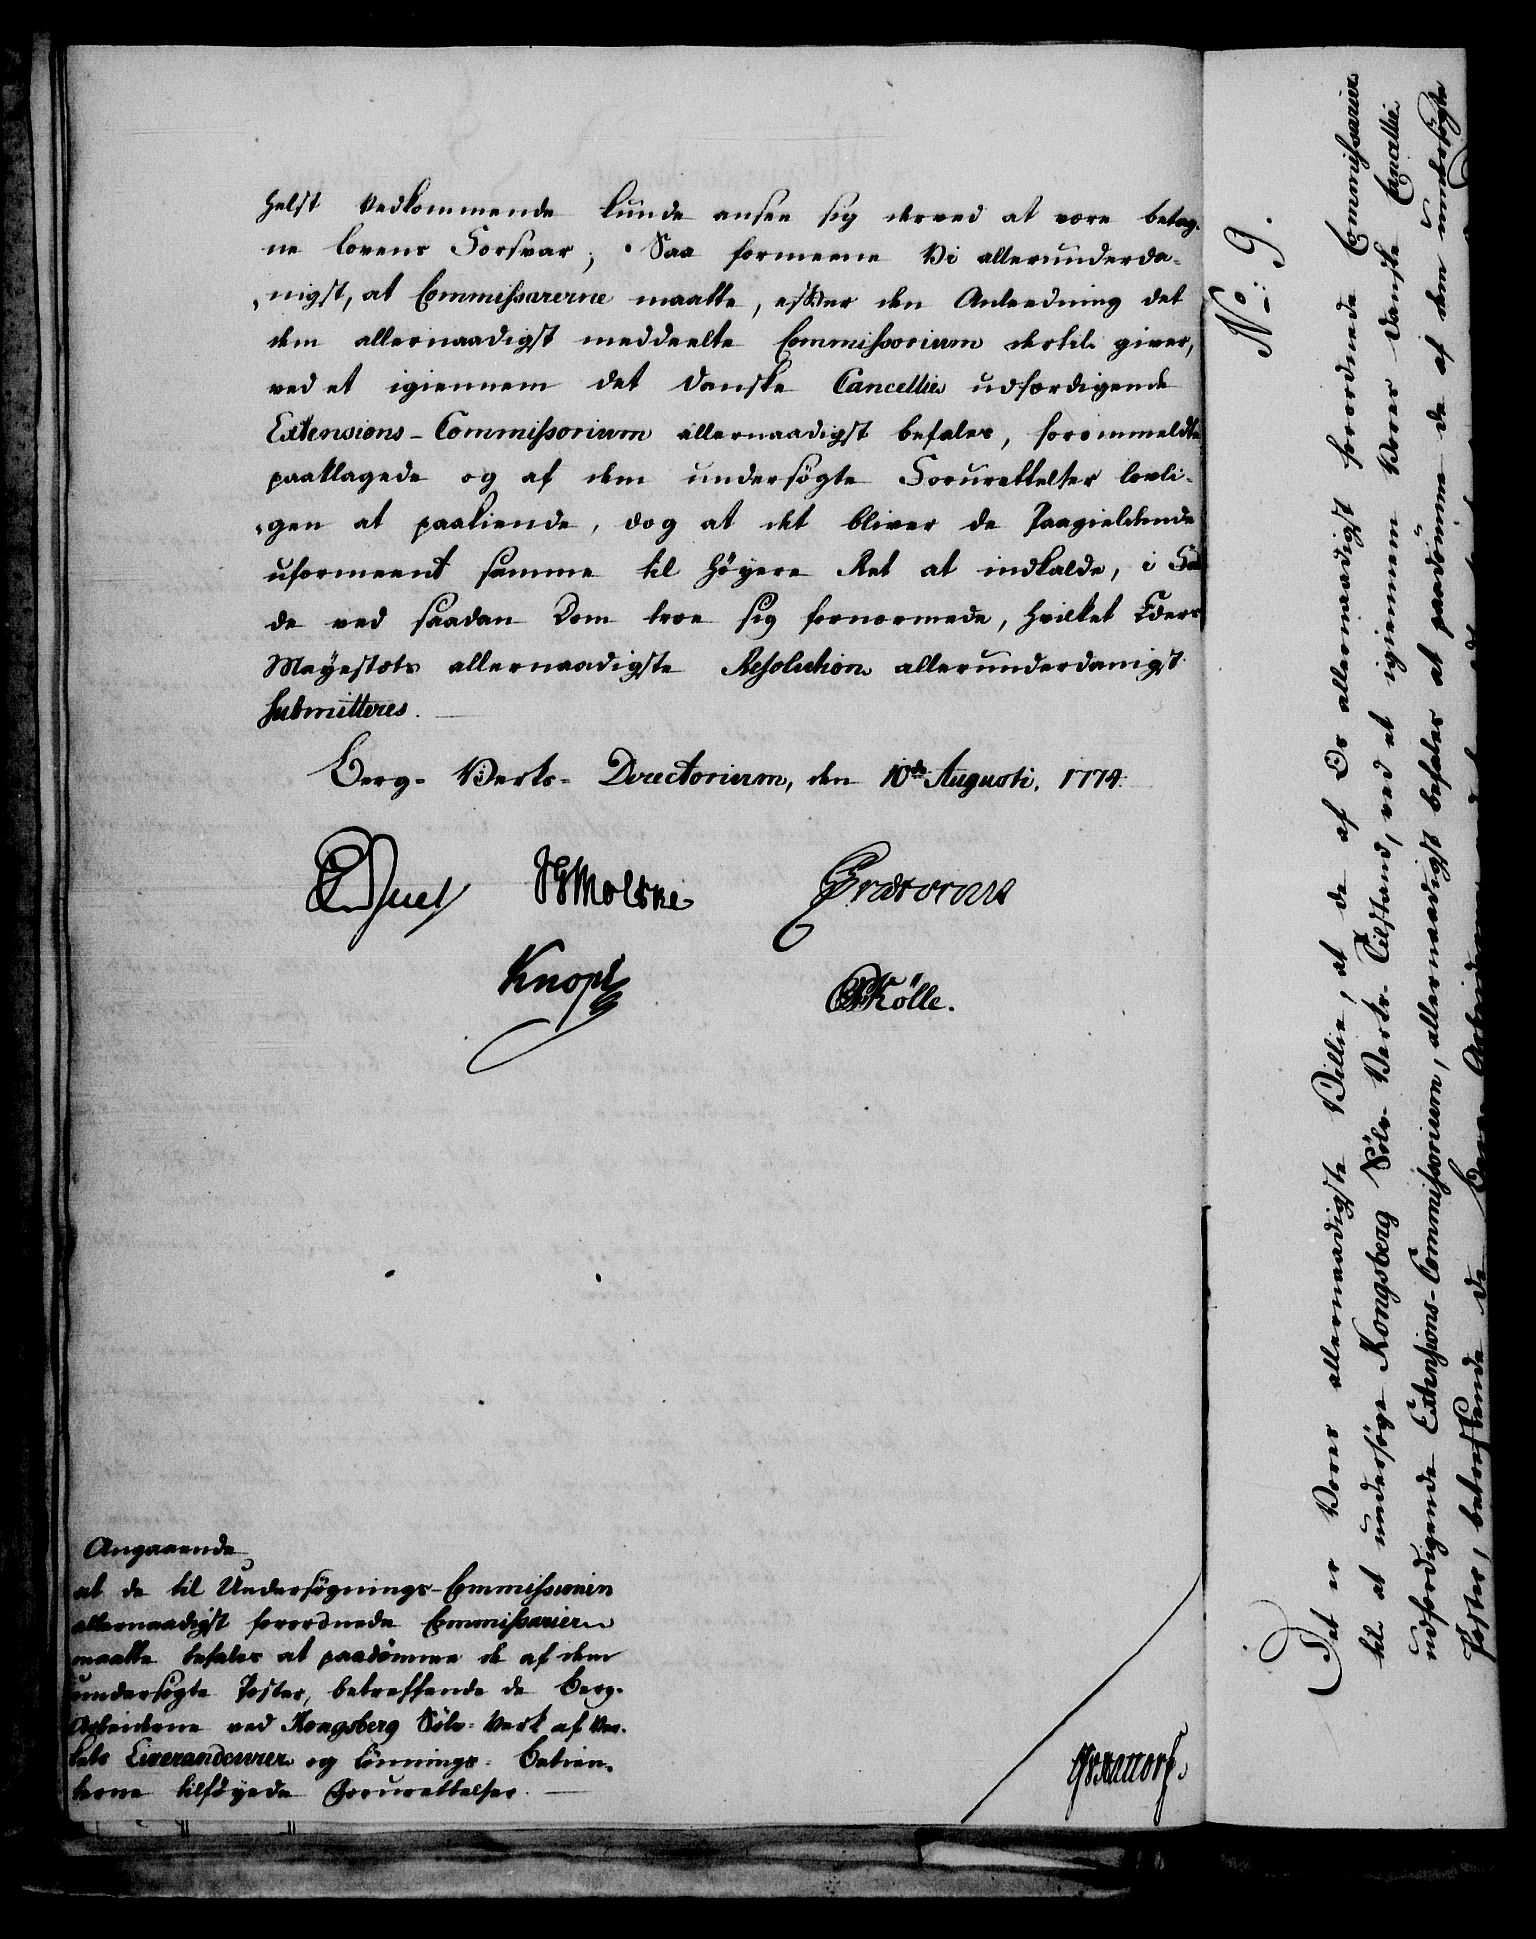 helst vedkommende kunde ansee sig derved at være betag-
ne lovens Forsvar; Saa formeene Vi allerunderda-
nigst, at Commissarerne maatte, efter den Anledning det
dem allernaadigst meddeelte Commissorium dertil giver,
ved et igiennem det danske Cancellie udfærdigende
Extensions-Commissorium allernaadigst befales, forommeldte
paaklagede og af dem undersøgte Forurettelser lovli-
gen at paakiende, dog at det bliver de Paagieldende
uformeent samme til høyere Ret at indkalde, i Fal
de ved saadan Dom troe sig fornærmede, hvilket Eders
Mayestæts allernaadigste Resolution allerunderdanigst
submitteres.
Berg-Verks-Directorium, den 10de Augusti. 1774.
Juel
Moltke
Prætorius
Knoph
Kölle.
Angaaende
at de til Undersøgnings-Commissionen
allernaadigst forordnede Commissarier
maatte befales at paadømme de af dem
undersøgte Poster, betreffende de Berg-
Arbeiderne ved Kongsberg Sølv-Verk af Ver-
kets Liverandeurer og Lønnings-Betien-
terne tilføyede Forurettelser.
No: 9.
Det er Vores allernaadigste Villie, at de af Os allernaadigst forordnede Commissarier
til at undersøge Kongsberg Sølv-Verks Tilstand, ved et igiennem Vores danske Cancellie
udfærdigende Extensions-Commissorium, allernaadigst befales at paadømme de af dem undersøgte
Poster, betreffende de Berg-Arbeiderne